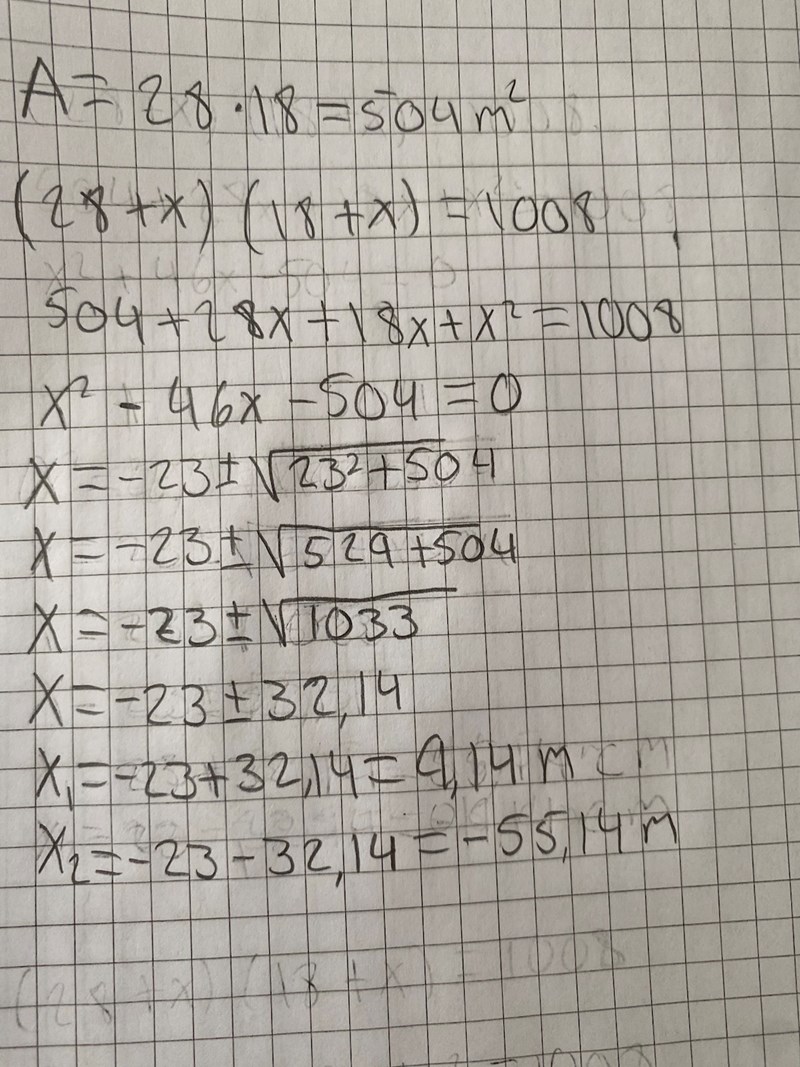 A = 28 · 18 = 504 m²
(28 + x) (18 + x) = 1008
504 + 28x + 18x + x² = 1008
x² - 46x - 504 = 0
x = -23 ± √23² + 504
x = -23 ± √529 + 504
x = -23 ± √1033
x = -23 ± 32,14
x₁ = -23 + 32,14 = 9,14 m cm
x₂ = -23 - 32,14 = -55,14 m
(28 + x) (18 + x) = 1008